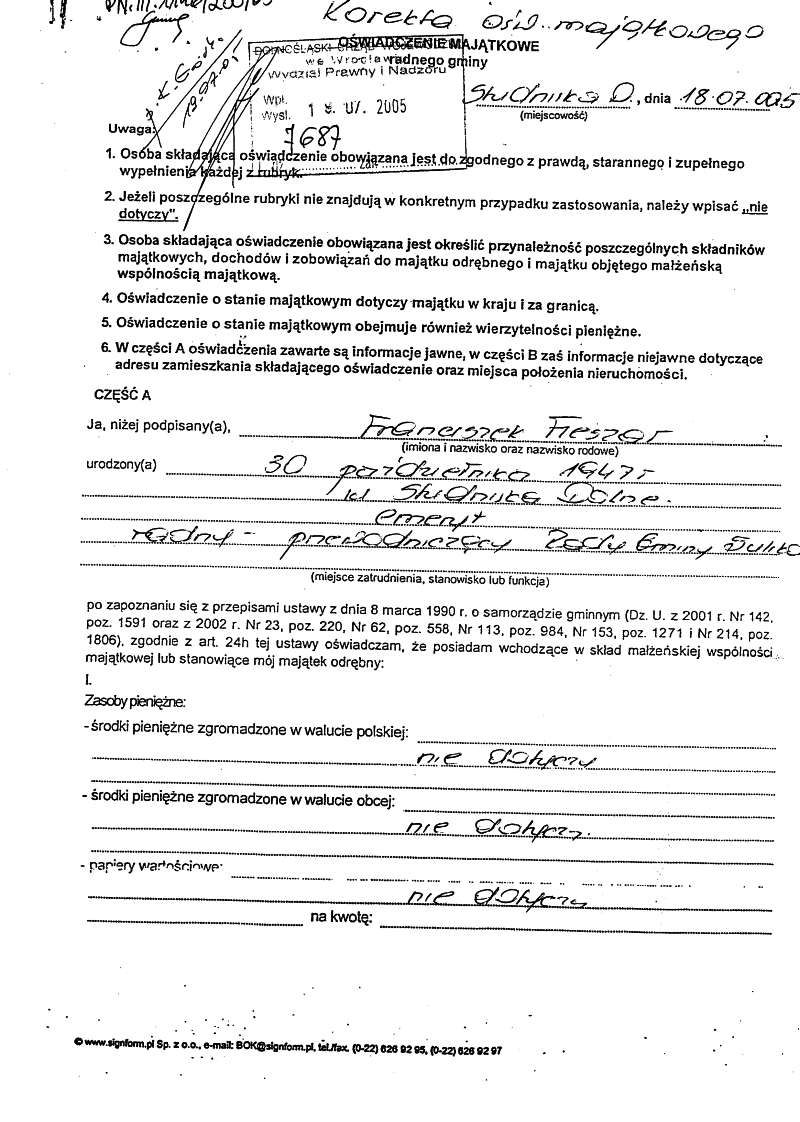 Korekta ośw. majątkowego
OŚWIADCZENIE MAJĄTKOWE
radnego gminy
DOLNOŚLĄSKI URZĄD
we Wrocławiu
Wydział Prawny i Nadzoru
Wpł.
Wysł. 1 8. 07. 2005
7687
Studniska D., dnia 18.07.005
(miejscowość)
Uwaga:
1. Osoba składająca oświadczenie obowiązana jest do zgodnego z prawdą, starannego i zupełnego
wypełnienia każdej z rubryk.
2. Jeżeli poszczególne rubryki nie znajdują w konkretnym przypadku zastosowania, należy wpisać „nie
dotyczy".
3. Osoba składająca oświadczenie obowiązana jest określić przynależność poszczególnych składników
majątkowych, dochodów i zobowiązań do majątku odrębnego i majątku objętego małżeńską
wspólnością majątkową.
4. Oświadczenie o stanie majątkowym dotyczy majątku w kraju i za granicą.
5. Oświadczenie o stanie majątkowym obejmuje również wierzytelności pieniężne.
6. W części A oświadczenia zawarte są informacje jawne, w części B zaś informacje niejawne dotyczące
adresu zamieszkania składającego oświadczenie oraz miejsca położenia nieruchomości.
CZĘŚĆ A
Ja, niżej podpisany(a), Franciszek Fieszar
(imiona i nazwisko oraz nazwisko rodowe)
urodzony(a) 30 października 1947 r
w Studniska Dolne.
emeryt
radny - przewodniczący Rady Gminy Suliko
(miejsce zatrudnienia, stanowisko lub funkcja)
po zapoznaniu się z przepisami ustawy z dnia 8 marca 1990 r. o samorządzie gminnym (Dz. U. z 2001 r. Nr 142,
poz. 1591 oraz z 2002 r. Nr 23, poz. 220, Nr 62, poz. 558, Nr 113, poz. 984, Nr 153, poz. 1271 i Nr 214, poz.
1806), zgodnie z art. 24h tej ustawy oświadczam, że posiadam wchodzące w skład małżeńskiej wspólności
majątkowej lub stanowiące mój majątek odrębny:
I.
Zasoby pieniężne:
- środki pieniężne zgromadzone w walucie polskiej:
nie dotyczy
- środki pieniężne zgromadzone w walucie obcej:
nie dotyczy.
- papiery wartościowe:
nie dotyczy
na kwotę:
© www.signform.pl Sp. z o.o., e-mail: BOK@signform.pl, tel./fax. (0-22) 626 92 95, (0-22) 626 92 97